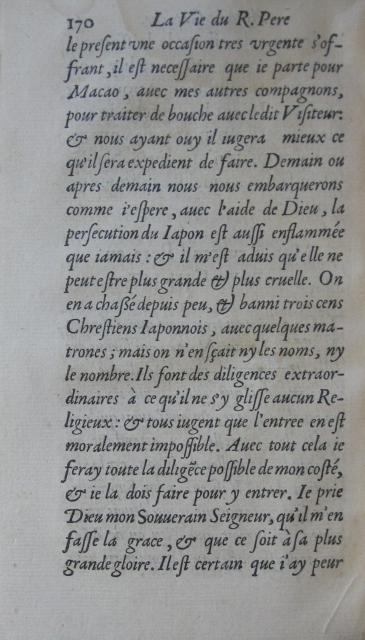 170 La Vie du R. Pere
le preſent vne occaſion tres vrgente s'of-
frant, il eſt neceſſaire que ie parte pour
Macao, auec mes autres compagnons,
pour traiter de bouche auec ledit Viſiteur:
& nous ayant ouy il iugera mieux ce
qu'il ſera expedient de faire. Demain ou
apres demain nous nous embarquerons
comme i'eſpere, auec l'aide de Dieu, la
perſecution du Iapon eſt auſſi enflammée
que iamais: & il m'eſt aduis qu'elle ne
peut eſtre plus grande & plus cruelle. On
en a chaßé depuis peu, & banni trois cens
Chreſtiens Iaponnois, auec quelques ma-
trones; mais on n'en ſçait ny les noms, ny
le nombre. Ils font des diligences extraor-
dinaires à ce qu'il ne s'y gliſſe aucun Re-
ligieux: & tous iugent que l'entree en eſt
moralement impoſſible. Auec tout cela ie
feray toute la diligẽce poſſible de mon coſté,
& ie la dois faire pour y entrer. Ie prie
Dieu mon Souuerain Seigneur, qu'il m'en
faſſe la grace, & que ce ſoit à ſa plus
grande gloire. Il eſt certain que i'ay peur